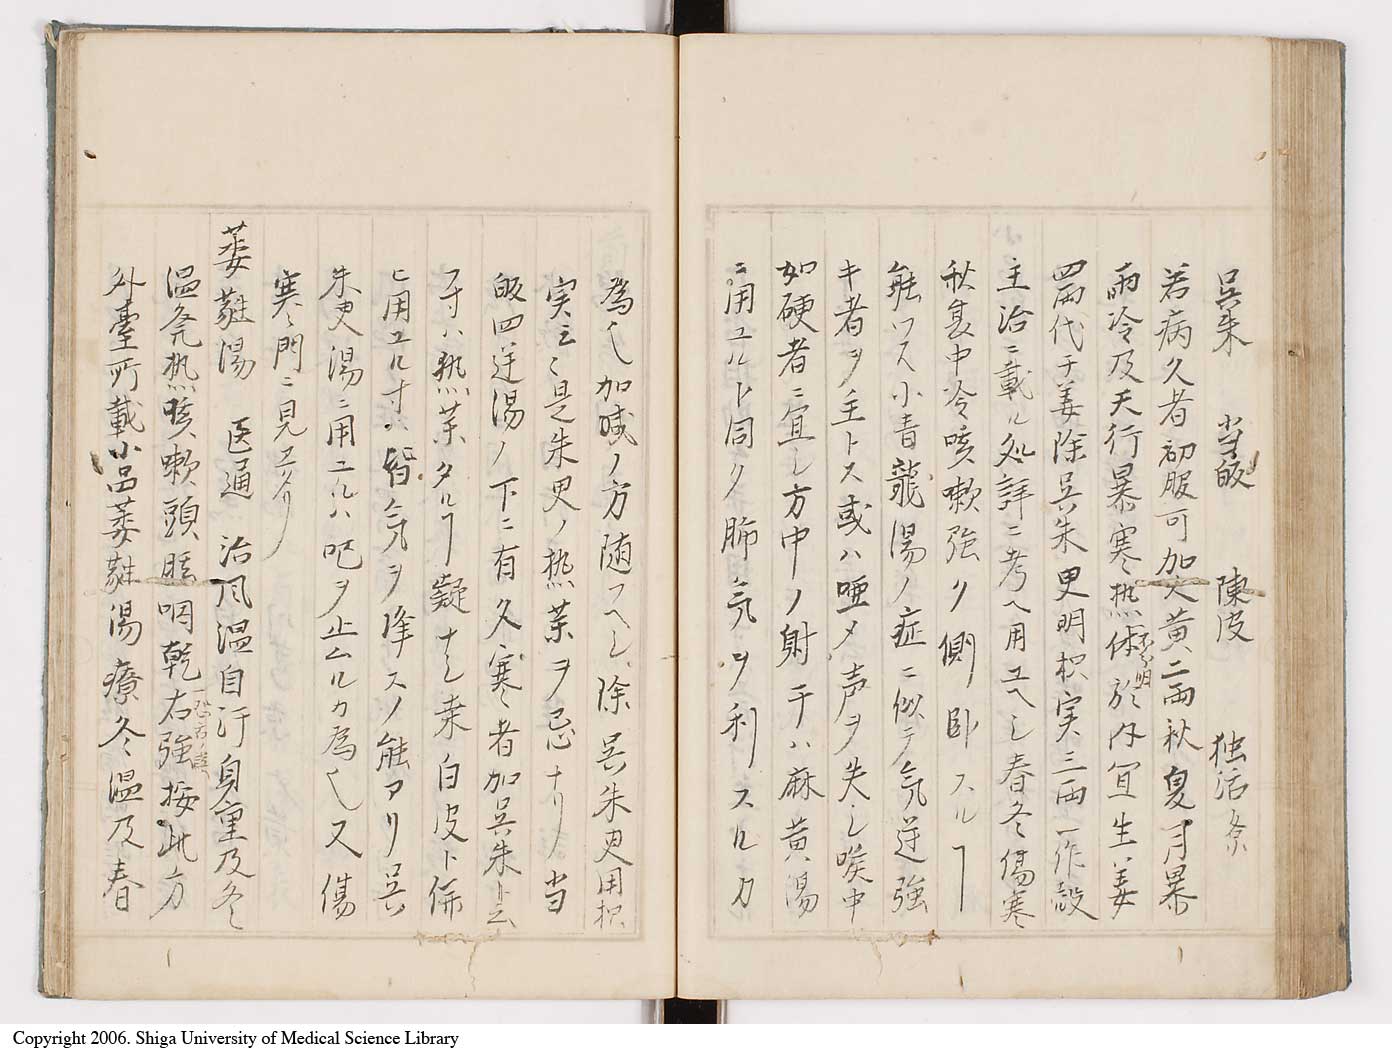 呉朱　当皈　陳皮　独活 各
若病久者初服可加大黄二両秋夏月暴
雨冷及天行暴寒熱㐲於内宜生姜
四両代干姜除呉朱更明枳実三両一作殻
主治ニ載ル処詳ニ考ヘ用ユヘシ春冬傷寒
秋夏中冷咳嗽強ク側臥スルヿ
能ハス小青龍湯ノ症ニ似テ気逆強
キ者ヲ主トス或ハ唖メ声ヲ失シ喉中
如硬者ニ宜シ方中ノ射干ハ麻黄湯
ニ用ユルト同ク肺気ヲ利スルカ
為也加減ノ方随フヘシ除呉朱更用枳
実云々是朱更ノ熱薬ヲ忌ナリ当
皈四逆湯ノ下ニ有久寒者加呉朱ト云
フ寸ハ熱薬タルヿ疑ナシ桒白皮ト併
ヒ用ユル寸ハ胸気ヲ降スノ能アリ呉
朱更湯ニ用ユルハ吧ヲ止ムルカ為也又傷
寒門ニ見エタリ
萎蕤湯　医通　治風温自汗身重及冬
温発熱咳嗽頭眩咽乾右強按此方
外臺所載小品萎蕤湯療冬温及春
Copyright 2006. Shiga University of Medical Science Library